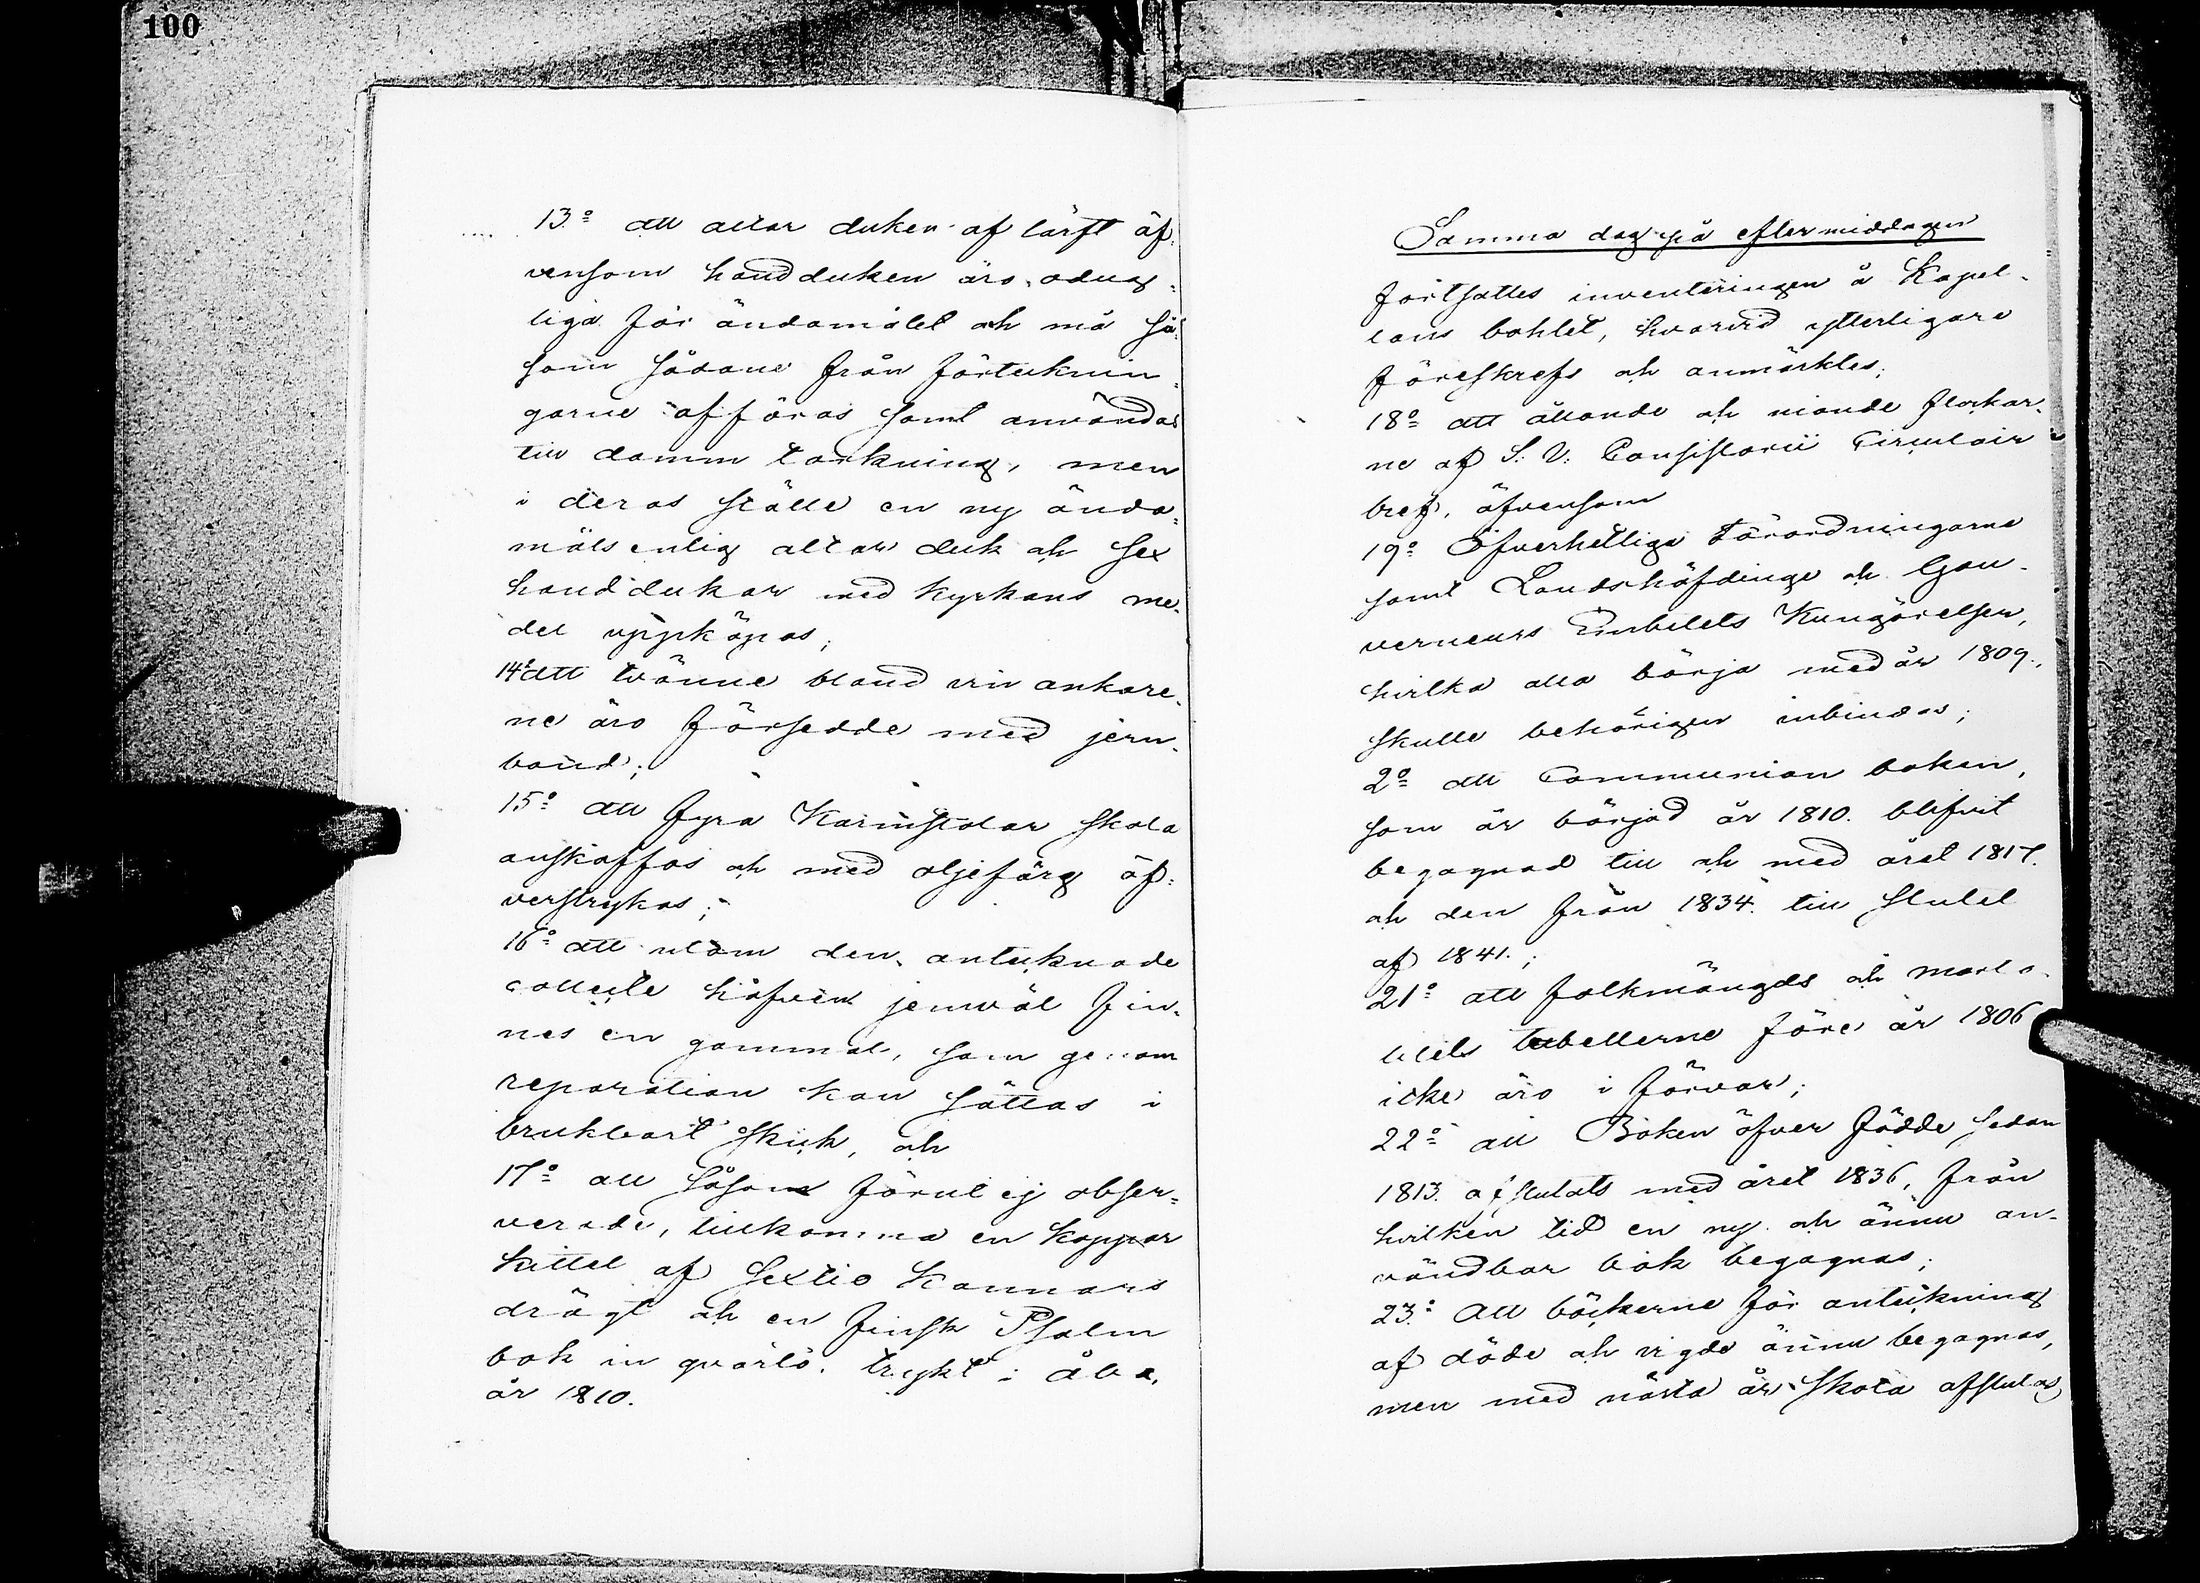 100
13:o att altar duken af lärft äf-
vensom handduken äro odug-
liga för ändamålet och må så-
som sådane från förtecknin-
garne afföras samt användas
till damm torkning, men
i deras ställe en ny ända-
måls enlig altar duk och sex
handdukar med kyrkans me-
del uppköpas;
14:o att tvänne bland vin ankare-
ne äro försedde med jern-
band;
15:o att fyra Karmstolar skola
anskaffas och med oljefärg öf-
verstrykas;
16:o att utom den antecknade
collecte håfven jemväl fin-
nes en gammal, som genom
reparation kan sättas i
brukbart skick, och
17:o att såsom förut ej obser-
verade, tillkomma en koppar
kittel af sextio kannors
drägt och en finsk Psalm
bok in qvarto, tryckt i Åbo,
år 1810.
Samma dag på eftermiddagen
fortsattes inventeringen å Kapel-
lans bohlet, hvarvid ytterligare
föreskrefs och anmärktes;
18:o att åttonde och nionde flockar-
ne af S: V: Consistorii Circulair
bref, äfvensom
19:o Öfverhetliga Förordningarne
samt Landshöfdinge och Gou-
verneurs Embetets Kungörelser,
hvilka alla börja med år 1809.,
skulle behörigen inbindas;
2:o att Communion boken,
som är börjad år 1810. blifvit
begagnad till och med året 1817.
och den från 1834. till slutet
af 1841.;
21:o att folkmängds och morta-
litets tabellerne före år 1806
icke äro i förvar;
22:o att Boken öfver födde sedan
1813. afslutats med året 1836, från
hvilken tid en ny och ännu an-
vändbar bok begagnas;
23:o Att böckerne för anteckning
af döde och vigde ännu begagnas,
men med nästa år skola afslutas